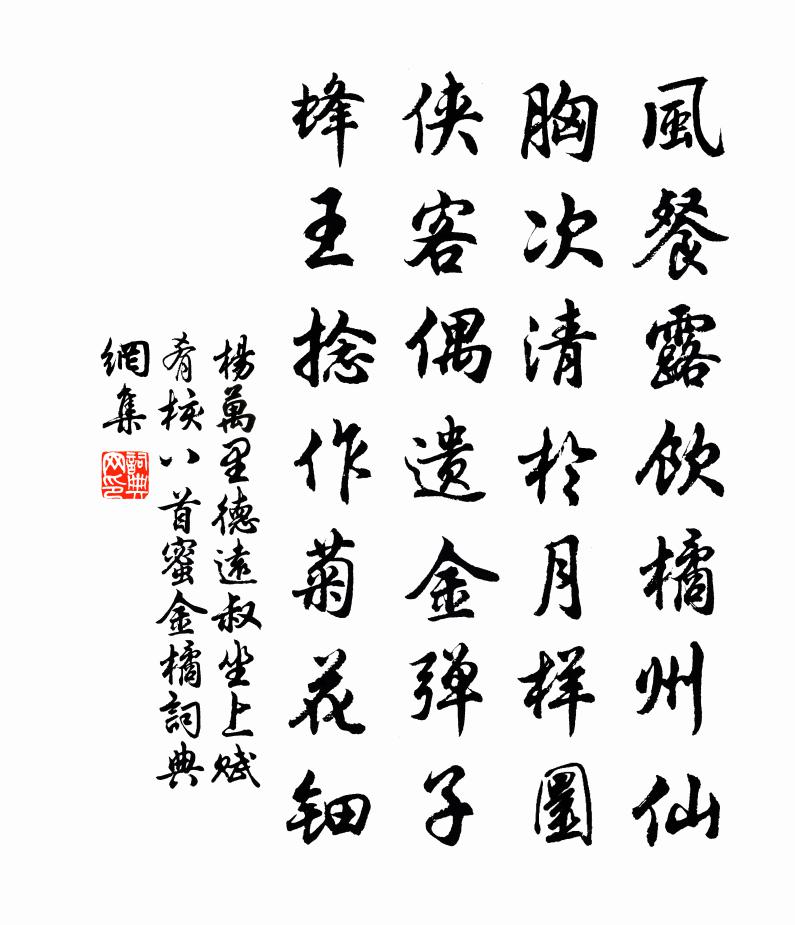 風餐露飲橘州仙
胸次清於月樣圓
俠客偶遺金弹子
蜂王捻作菊花鈿
楊萬里德遠叔坐上賦
肴核八首蜜金橘詞典
網集
詞典网印